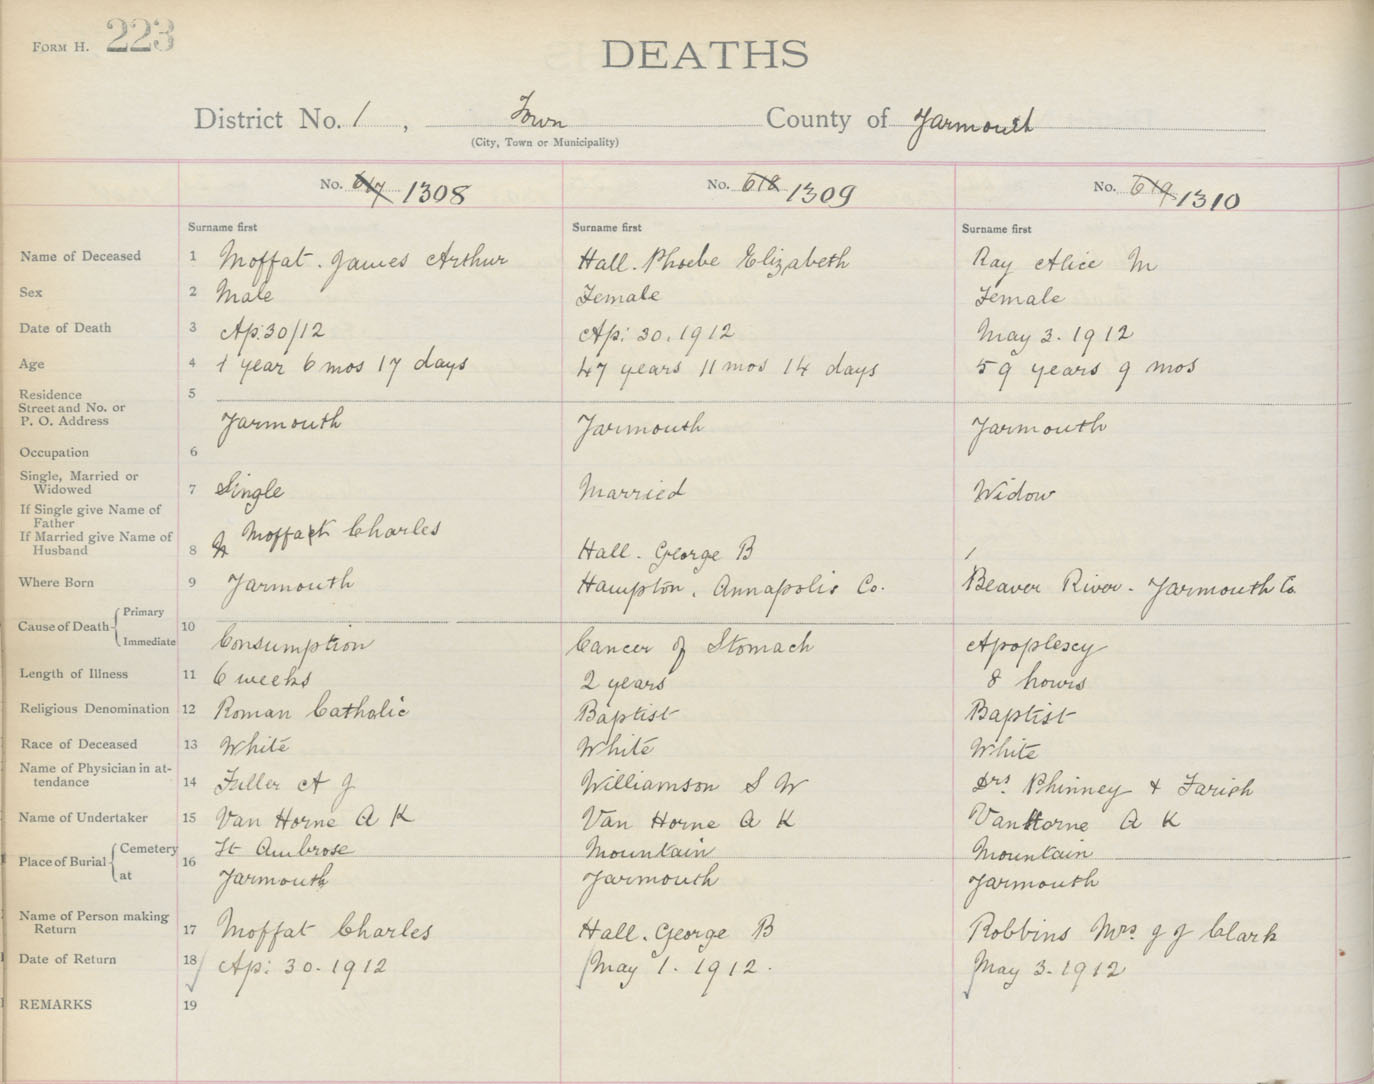 FORM H. 223
DEATHS
District No. 1, Town County of Yarmouth
(City, Town or Municipality)
No. 617 1308 No. 618 1309 No. 619 1310
Surname first Surname first Surname first
Name of Deceased 1 Moffat. James Arthur Hall. Phoebe Elizabeth Ray Alice M
Sex 2 Male Female Female
Date of Death 3 Ap: 30/12 Ap: 30. 1912 May 3. 1912
Age 4 1 year 6 mos 17 days 47 years 11 mos 14 days 59 years 9 mos
Residence 5
Street and No. or
P. O. Address Yarmouth Yarmouth Yarmouth
Occupation 6
Single, Married or
Widowed 7 Single Married Widow
If Single give Name of
Father
If Married give Name of
Husband 8 Moffatt Charles Hall. George B
Where Born 9 Yarmouth Hampton, Annapolis Co. Beaver River. Yarmouth Co
Cause of Death Primary 10
Immediate Consumption Cancer of Stomach Apoplexy
Length of Illness 11 6 weeks 2 years 8 hours
Religious Denomination 12 Roman Catholic Baptist Baptist
Race of Deceased 13 White White White
Name of Physician in at-
tendance 14 Fuller A J Williamson S W Drs. Phinney + Farish
Name of Undertaker 15 Van Horne A K Van Horne A K Van Horne A K
Place of Burial Cemetery 16 St Ambrose Mountain Mountain
at Yarmouth Yarmouth Yarmouth
Name of Person making
Return 17 Moffat Charles Hall. George B Robbins Mrs. J J Clark
Date of Return 18 Ap: 30. 1912 May 1. 1912. May 3. 1912
REMARKS 19